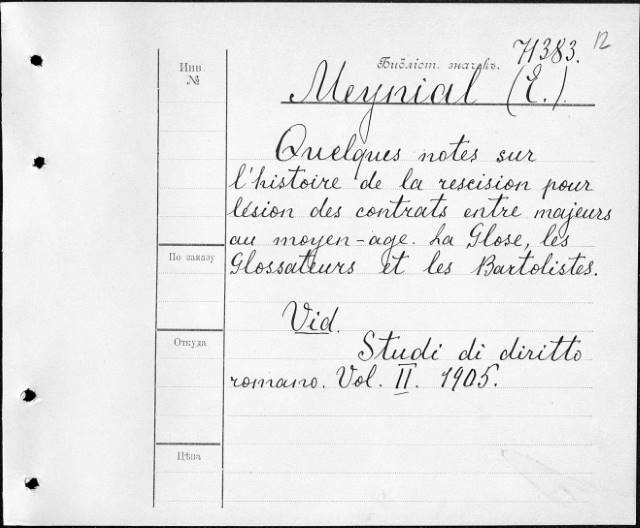 Инв. №
Библіот. значекъ. 71383. 12
Meynial (E.).
Quelques notes sur
l'histoire de la rescision pour
lésion des contrats entre majeurs
au moyen-age. La Glose, les
Glossateurs et les Bartolistes.
По заказу
Vid.
Откуда
Studi di diritto
romano. Vol. II. 1905.
Цѣна